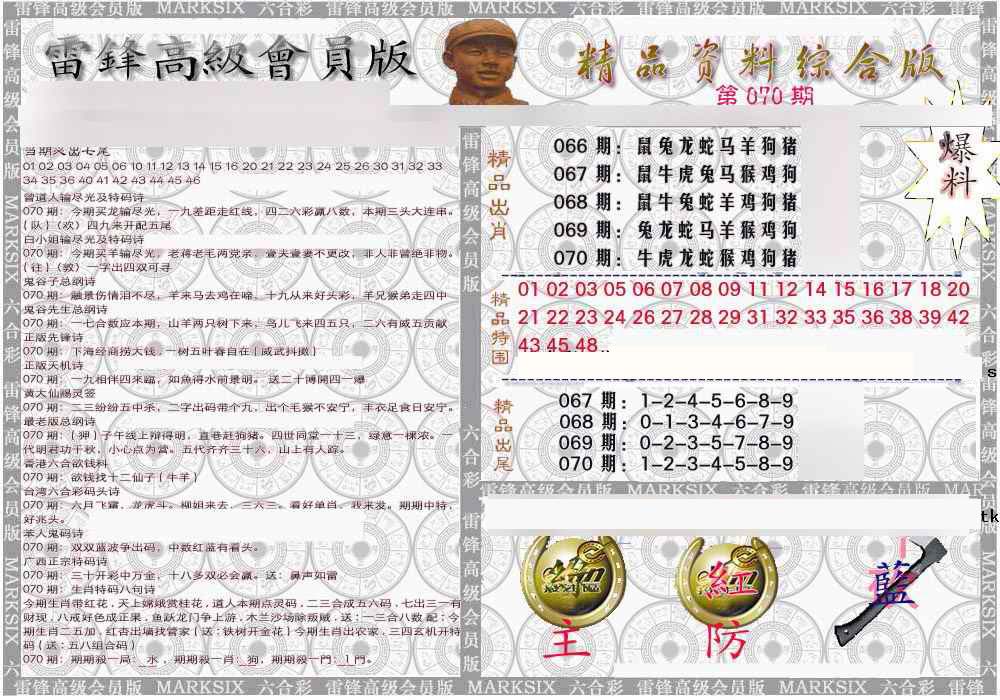 雷锋高级会员版 MARKSIX 六合彩 雷锋高级会员版 MARKSIX 六合彩 雷锋高级会员版 MARKSIX 六合彩 雷锋
雷鋒高級會員版
精品资料综合版
第 070 期
爆料
01 02 03 04 05 06 10 11 12 13 14 15 16 20 21 22 23 24 25 26 30 31 32 33
34 35 36 40 41 42 43 44 45 46
曾道人输尽光及特码诗
070 期：今期买龙输尽光，一九差距走红线，四二六彩赢八数，本期三头大连串。
{队}〈欢〉四九来开配五尾
白小姐输尽光及特码诗
070 期：今期买羊输尽光，老蒋老毛两党亲，壹夫壹妻不更改，非人非曾绝非物。
{往}〈敦〉一字出四双可寻
鬼谷子总纲诗
070 期：融景伤情泪不尽，羊来马去鸡在啼，十九从来好头彩，羊兄猴弟走四中
鬼谷先生总纲诗
070 期：一七合数应本期，山羊两只树下来，鸟儿飞来四五只，二六有威五贡献
正版先锋诗
070 期：下海经商捞大钱，一树五叶春自在{威武抖擞}
正版天机诗
070 期：一九相伴四來臨，如魚得水前景明。送二十博開四一爆
黄大仙赐灵签
070 期：二三纷纷五中杀，二字出码带个九，出个毛猴不安宁，丰衣足食日安宁。
最老版总纲诗
070 期：{狎}子午线上辩得明，直巷赶狗猪。四世同堂一十三，绿意一棵浓。一
代明君功千秋，小心点为营。五代齐齐三十六，山上有人踪。
香港六合欲钱料
070 期：欲钱找十二仙子{牛羊}
台湾六合彩码头诗
070 期：六月飞霜，龙虎斗。柳姐来去，三六三。看好单肖。我来发。期期中特，
好兆头。
本人鬼码诗
070 期：双双蓝波争出码，中数红蓝有看头。
广西正宗特码诗
070 期：三十开彩中万金，十八多双必会赢。送：鼻声如雷
070 期：生肖特码八句诗
今期生肖带红花，天上嫦娥赏桂花，道人本期点灵码，二三合成五六码，七出三一有
财现，八戒好色成正果，鱼跃龙门争上游，木兰沙场除叛贼，送：一三合八数 配：今
期生肖二五加，红杏出墙找管家{送：铁树开金花}今期生肖出农家，三四玄机开特
码{送：五八组合码}
070 期：期期殺一局：水，期期殺一肖：狗，期期殺一門：1 門。
精品出肖
066 期：鼠兔龙蛇马羊狗猪
067 期：鼠牛虎兔马猴鸡狗
068 期：鼠牛兔蛇羊鸡狗猪
069 期：兔龙蛇马羊猴鸡狗
070 期：牛虎龙蛇猴鸡狗猪
精品特围
01 02 03 05 06 07 08 09 11 12 14 15 16 17 18 20
21 22 23 24 26 27 28 29 31 32 33 35 36 38 39 42
43 45 48..
精品出尾
067 期：1-2-4-5-6-8-9
068 期：0-1-3-4-6-7-9
069 期：0-2-3-5-7-8-9
070 期：1-2-3-4-5-8-9
雷锋高级会员版 MARKSIX 六合彩 雷锋高级会员版
紅
藍
主
防
雷锋高级会员版 MARKSIX 六合彩 雷锋高级会员版 MARKSIX 六合彩 雷锋高级会员版 MARKSIX 六合彩 雷锋